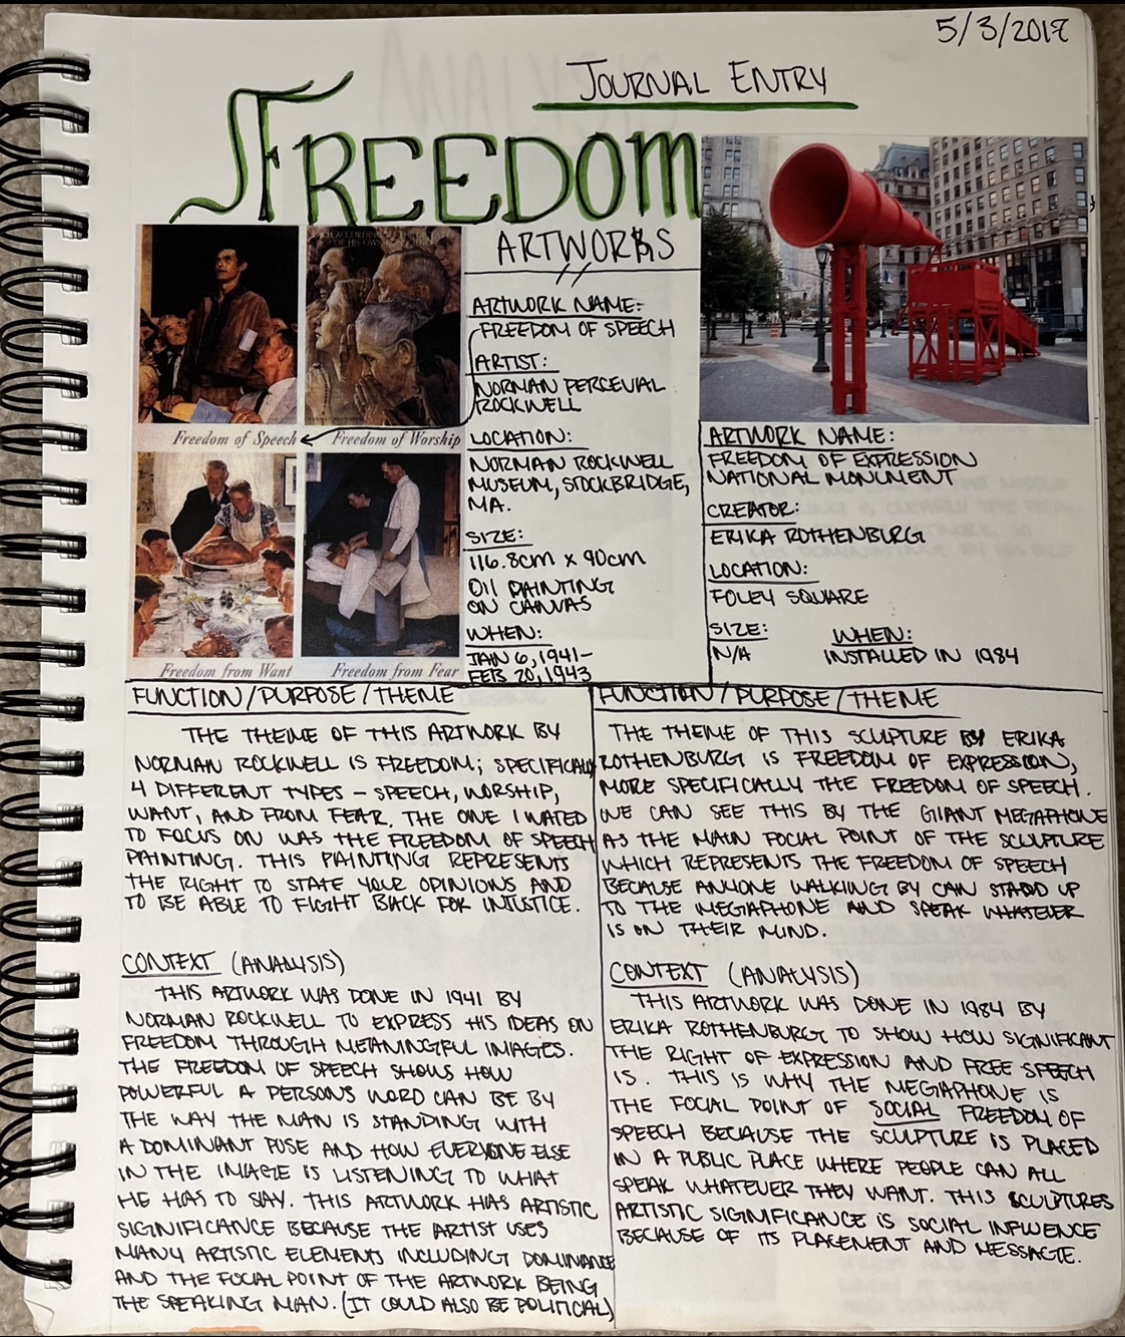 5/3/2018
JOURNAL ENTRY
FREEDOM
ARTWORKS
Freedom of Speech
Freedom of Worship
Freedom from Want
Freedom from Fear
ARTWORK NAME:
FREEDOM OF SPEECH
ARTIST:
NORMAN PERCEVAL
ROCKWELL
LOCATION:
NORMAN ROCKWELL
MUSEUM, STOCKBRIDGE,
MA.
SIZE:
116.8cm x 90cm
OIL PAINTING
ON CANVAS
WHEN:
JAN 6, 1941-
FEB 20, 1943
ARTWORK NAME:
FREEDOM OF EXPRESSION
NATIONAL MONUMENT
CREATOR:
ERIKA ROTHENBURG
LOCATION:
FOLEY SQUARE
SIZE:
N/A
WHEN:
INSTALLED IN 1984
FUNCTION/PURPOSE/THEME
THE THEME OF THIS ARTWORK BY
NORMAN ROCKWELL IS FREEDOM; SPECIFICALLY
4 DIFFERENT TYPES - SPEECH, WORSHIP,
WANT, AND FROM FEAR. THE ONE I WATED
TO FOCUS ON WAS THE FREEDOM OF SPEECH
PAINTING. THIS PAINTING REPRESENTS
THE RIGHT TO STATE YOUR OPINIONS AND
TO BE ABLE TO FIGHT BACK FOR INJUSTICE.
CONTEXT (ANALYSIS)
THIS ARTWORK WAS DONE IN 1941 BY
NORMAN ROCKWELL TO EXPRESS HIS IDEAS ON
FREEDOM THROUGH MEANINGFUL IMAGES.
THE FREEDOM OF SPEECH SHOWS HOW
POWERFUL A PERSONS WORD CAN BE BY
THE WAY THE MAN IS STANDING WITH
A DOMINANT POSE AND HOW EVERYONE ELSE
IN THE IMAGE IS LISTENING TO WHAT
HE HAS TO SAY. THIS ARTWORK HAS ARTISTIC
SIGNIFICANCE BECAUSE THE ARTIST USES
MANY ARTISTIC ELEMENTS INCLUDING DOMINANCE
AND THE FOCAL POINT OF THE ARTWORK BEING
THE SPEAKING MAN. (IT COULD ALSO BE POLITICAL)
FUNCTION/PURPOSE/THEME
THE THEME OF THIS SCULPTURE BY ERIKA
ROTHENBURG IS FREEDOM OF EXPRESSION,
MORE SPECIFICALLY THE FREEDOM OF SPEECH.
WE CAN SEE THIS BY THE GIANT MEGAPHONE
AS THE MAIN FOCAL POINT OF THE SCULPTURE
WHICH REPRESENTS THE FREEDOM OF SPEECH
BECAUSE ANYONE WALKING BY CAN STAND UP
TO THE MEGAPHONE AND SPEAK WHATEVER
IS ON THEIR MIND.
CONTEXT (ANALYSIS)
THIS ARTWORK WAS DONE IN 1984 BY
ERIKA ROTHENBURG TO SHOW HOW SIGNIFICANT
THE RIGHT OF EXPRESSION AND FREE SPEECH
IS. THIS IS WHY THE MEGAPHONE IS
THE FOCAL POINT OF SOCIAL FREEDOM OF
SPEECH BECAUSE THE SCULPTURE IS PLACED
IN A PUBLIC PLACE WHERE PEOPLE CAN ALL
SPEAK WHATEVER THEY WANT. THIS SCULPTURES
ARTISTIC SIGNIFICANCE IS SOCIAL INFLUENCE
BECAUSE OF ITS PLACEMENT AND MESSAGE.